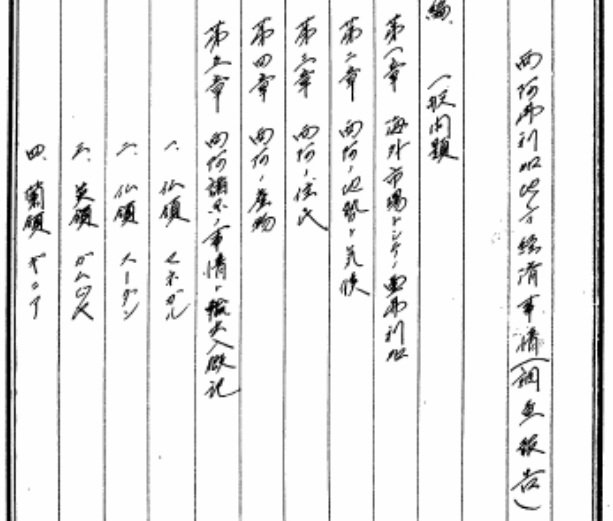 西阿弗利加地方経済事情(調査報告)
編、 一般問題
第一章 海外市場トシテノ西弗利加
第二章 西阿ノ地勢ト気候
第三章 西阿ノ住民
第四章 西阿ノ産物
第五章 西阿諸国ノ事情ト輸出入概記
一、仏領 セネガル
二、仏領 スーダン
三、英領 ガムビヤ
四、葡領 ギニア